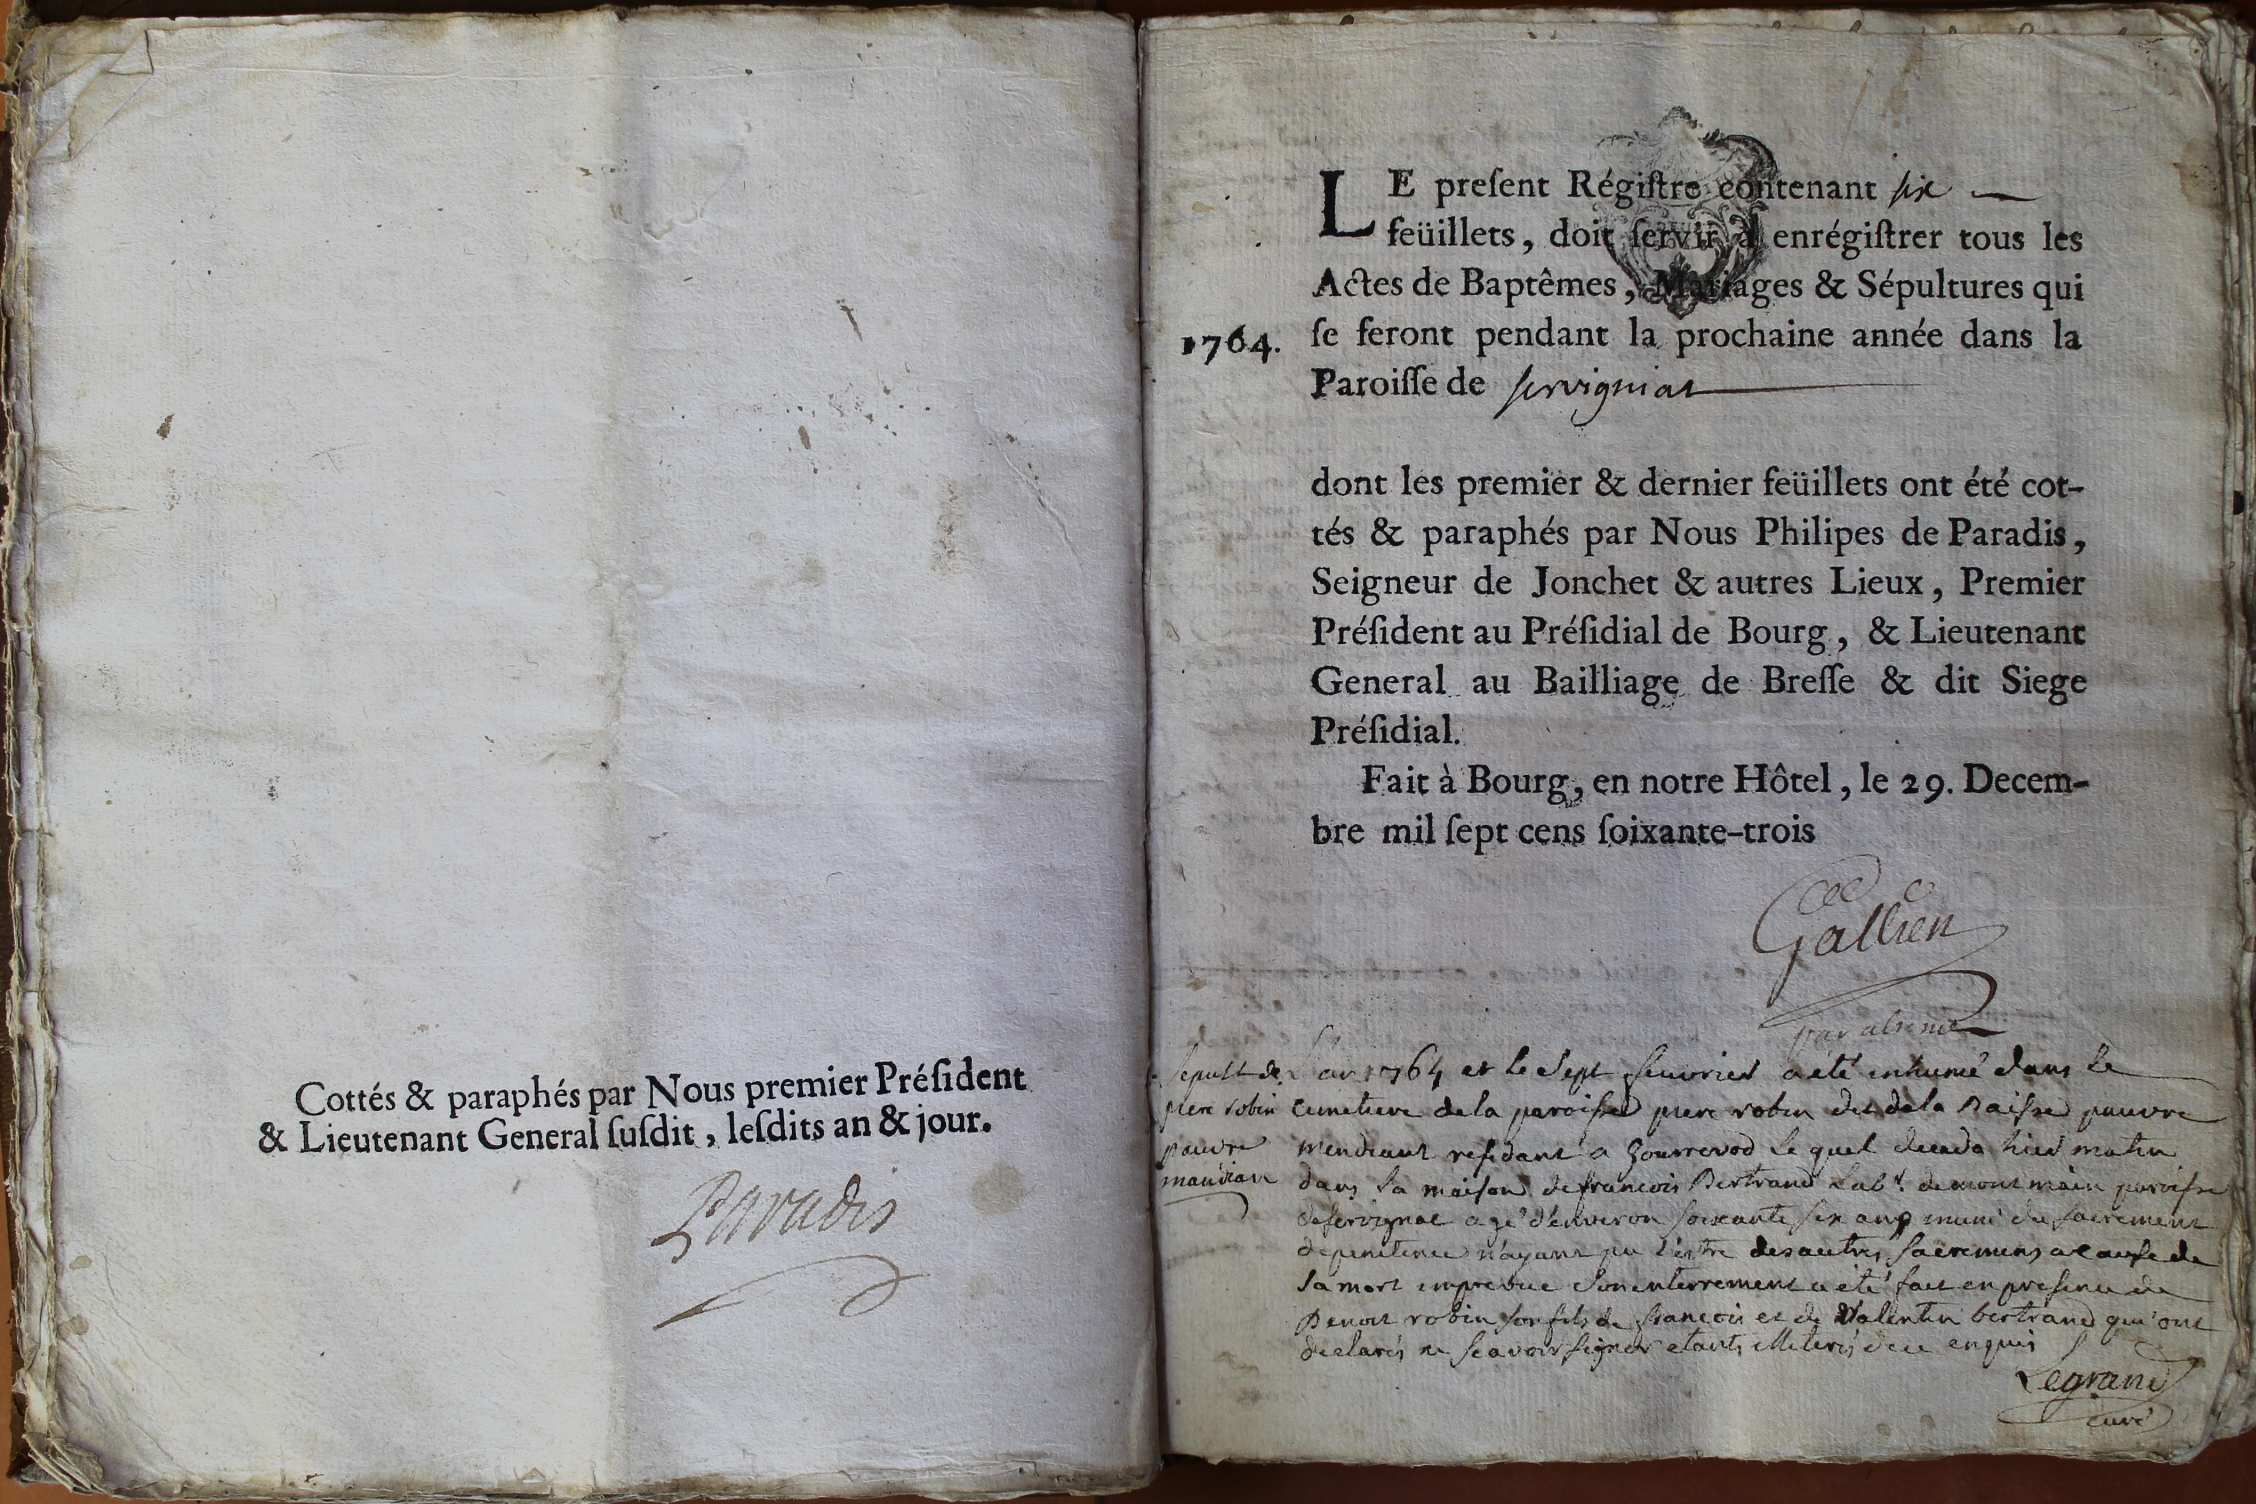 Cottés & paraphés par Nous premier Préſident
& Lieutenant General ſuſdit, leſdits an & jour.
Paradis
LE preſent Régiſtre contenant six
feüillets, doit ſervir à enrégiſtrer tous les
Actes de Baptêmes, Mariages & Sépultures qui
1764. ſe feront pendant la prochaine année dans la
Paroiſſe de servignat
dont les premier & dernier feüillets ont été cot-
tés & paraphés par Nous Philipes de Paradis,
Seigneur de Jonchet & autres Lieux, Premier
Préſident au Préſidial de Bourg, & Lieutenant
General au Bailliage de Breſſe & dit Siege
Préſidial.
Fait à Bourg, en notre Hôtel, le 29. Decem-
bre mil ſept cens ſoixante-trois
Gallien
Sepult de
piere robin
pauvre
mandiant
L'an 1764 et le sept feuvrier a été inhumé dans le
cimetiere de la paroisse piere robin dit de la Raisse pauvre
mendiant residant a Gourrevod le quel deceda hier matin
dans la maison de francois Bertrand lab.r de montmain paroisse
de servignat agé d'environ soixante six ans muni du sacrement
de penitence n'ayant pu l'estre des autres sacremens a cause de
sa mort imprevue son enterrement a été fait en presence de
Benoit robin son fils de francois et de Valentin bertrand qui ont
declarés ne scavoir signer etants illiterés de ce enquis
Legrand
curé